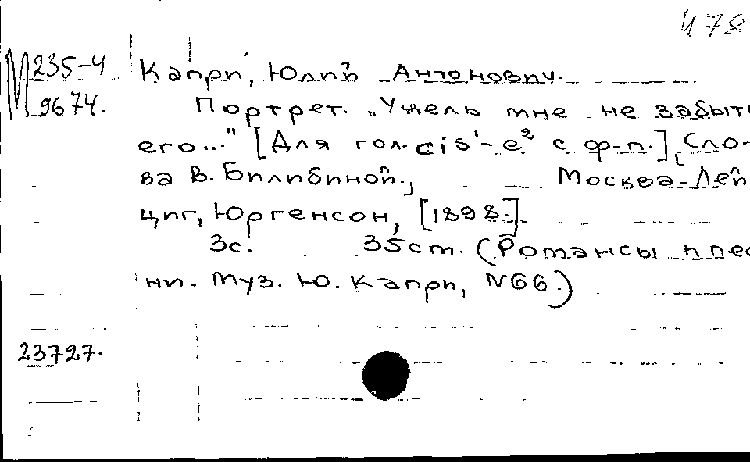 478
М 235-4
9674.
Капри, Юлий Антонович.
Портрет. „Ужель мне не забыть
его..." [Для гол. cis¹-e² с ф-п.], Сло-
ва В. Билибиной.,
Москва-Лей
циг, Юргенсон, [1898.].
3с. 35cm. (Романсы и пес
ни. Муз. Ю. Капри, №66.)
23727.